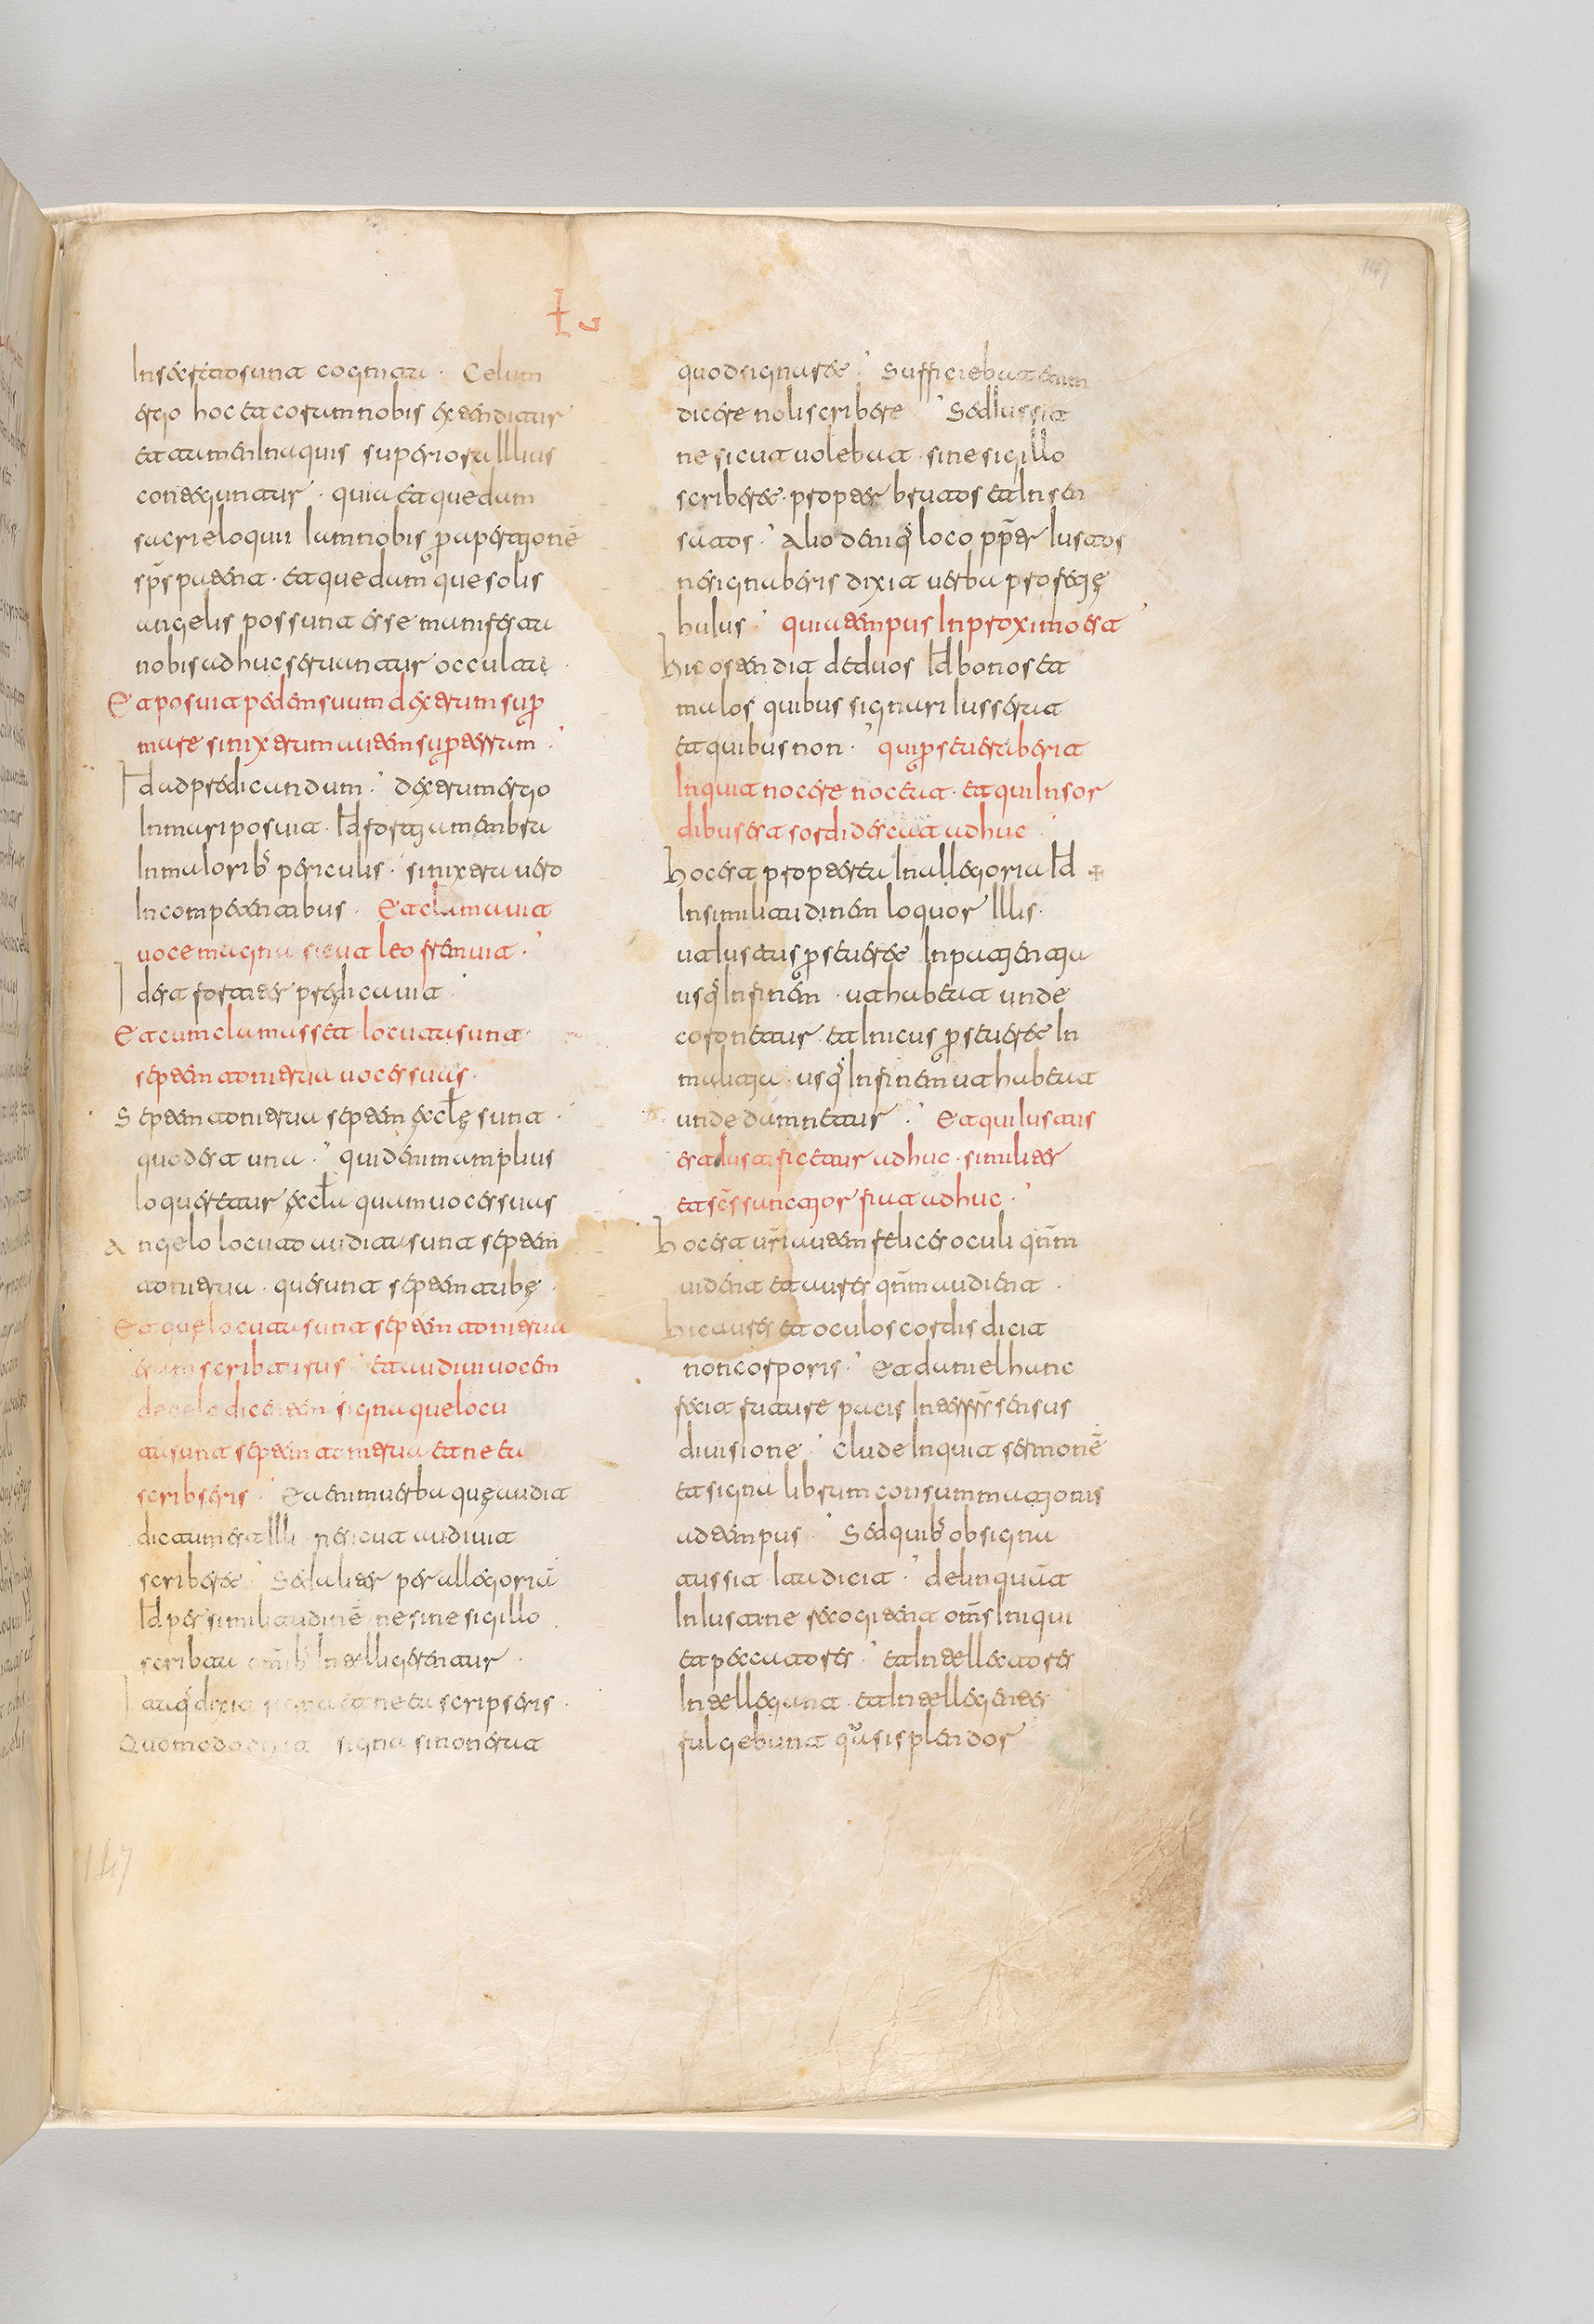 cogniti · Celum
ergo hoc et nobis extenditur
et tamen In aquis superiora Illius
conteguntur · quia et quedam
sacri eloquii Iam nobis ꝓ apertionē
sp̄s patent · et quedam que solis
angelis possunt esse manifesta
nobis adhuc seruantur occulta ·
Et posuit pedem suum dexterum supꝑ
mare sinixterum autem suꝑ terram ·
Id ad predicandum · dexterum ergo
In mari posuit · Id fortia membra
In maiorib; periculis · sinixtera uero
In competentibus · Et clamauit
uoce magna sicut leo fremuit ·
Id est fortiter predicauit ·
Et cum clamasset · locuta sunt
septem tonitrua uoces suas ·
Septem tonitrua septem ęccl̄ę sunt ·
quod est una · quid enim amplius
loqueretur ęccl̄a quam uoces suas
Angelo locuto audita sunt septem
tonitrua · que sunt septem tubę ·
Et quę locuta sunt septem tonitrua
eram scribiturus · et audiui uocem
de celo dicentem signa que locu
ta sunt septem tonitrua et ne ea
scribseris · Ea enim uerba quę audit
dictum est Illi ne sicut audiuit
scriberet · Sed aliter per allegoriā
Id per similitudinē ne sine sigillo
scribta omnib; Intelligerentur ·
Itaq; dixit signa et ne ea scripseris ·
Quomodo signa si non erat
quod signaret · Sufficiebat enim
dicere noli scribere · Sed Iussit
ne sicut uolebat · sine sigillo
scriberet · propter brutos et Insen
satos · Alio deniq; loco pp̄ter Iustos
ne signaberis dixit uerba profetię
huius · quia tempus In proximo est
hic ostendit deduos Id bonos et
malos quibus signari Iusserat
et quibus non · qui ꝑseueraberit
Inquit nocere noceat · et qui In sor
dibus est sordidescat adhuc ·
hoc est propterea In allegoria Id
In similitudinem loquor Illis ·
ut Iustus ꝑseueret In patientia
usq; In finem · ut habeat unde
coronetur et Inicus ꝑseueret In
malitia · usq; In finem ut habeat
unde damnetur · Et qui Iustus
est Iustificetur adhuc · similiter
et sc̄s sanctior fiat adhuc ·
hoc est ur̄i autem felices oculi qn̄m
uident et aures qn̄m audient ·
hic aures et oculos cordis dicit
non corporis · Et daniel hanc
fecit future pacis In terr̄ sensus
diuisione · clude Inquit sermonē
et signa librum consummationis
ad tempus · Sed quib; obsigna
tus sit Iam dicit · delinquant
In Iusti ne recogitent omn̄s Iniqui
et peccatores · et Intellectores
Intellegunt · et Intellegentes
fulgebunt quasi splendor
147
147